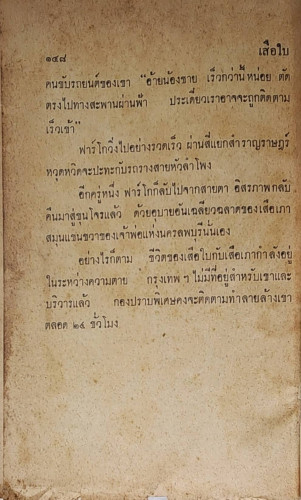 ๑๔๘
เสือใบ
คนขับรถยนต์ของเขา "อ้ายน้องชาย เร็วกว่านี้หน่อย ตัด
ตรงไปทางสะพานผ่านฟ้า ประเดี๋ยวเราอาจจะถูกติดตาม
เร็วเข้า"
ฟาร์โกวิ่งไปอย่างรวดเร็ว ผ่านสี่แยกสำราญราษฎร์
หวุดหวิดจะปะทะกับรถรางสายหัวลำโพง
อีกครู่หนึ่ง ฟาร์โกก็ลับไปจากสายตา อิสรภาพกลับ
คืนมาสู่ขุนโจรแล้ว ด้วยอุบายอันเฉลียวฉลาดของเสือเภา
สมุนแขนขวาของเจ้าพ่อแห่งนครลพบุรีนั่นเอง
อย่างไรก็ตาม ชีวิตของเสือใบกับเสือเภากำลังอยู่
ในระหว่างความตาย กรุงเทพ ฯ ไม่มีที่อยู่สำหรับเขาและ
บริวารแล้ว กองปราบพิเศษคงจะติดตามทำลายล้างเขา
ตลอด ๒๔ ชั่วโมง